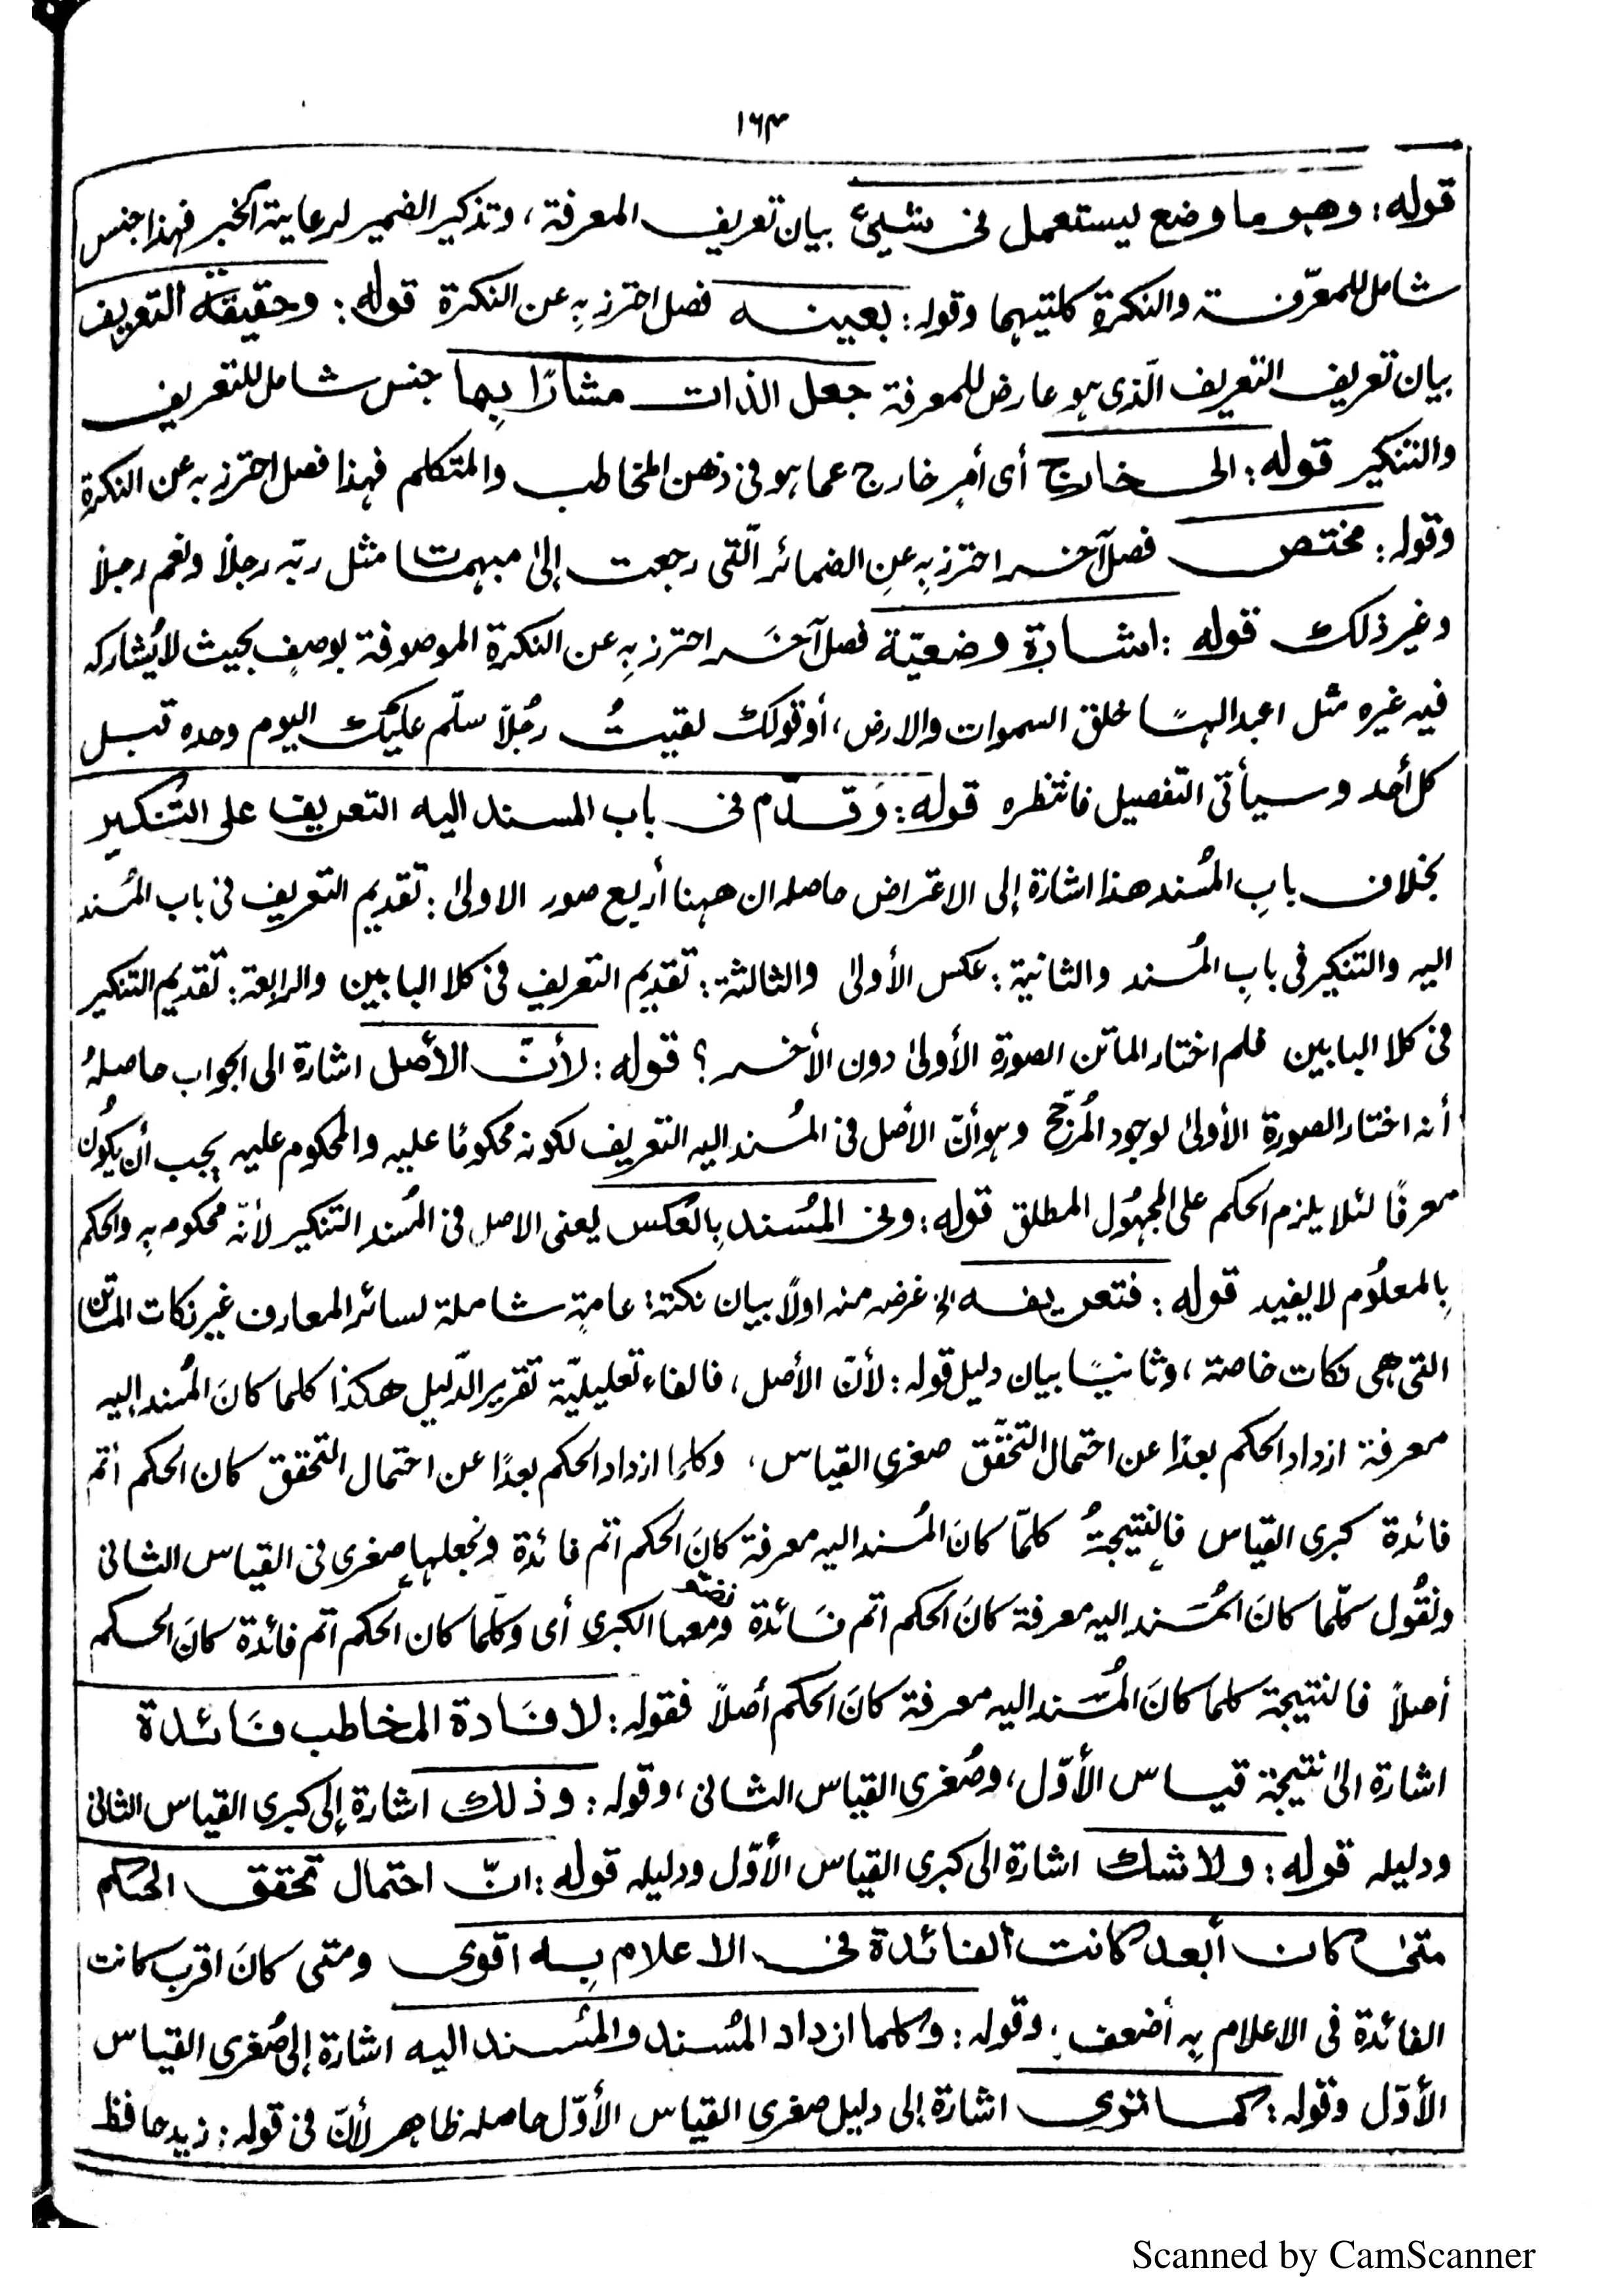 ١٦٣
قوله: وهو ما وضع ليستعمل فى شيئ بيان تعريف المعرفة، وتذكير الضمير لرعاية الخبر فهذا جنس
شامل للمعرّفة والنكرة كلتيهما وقوله: بعينه فصل احترز بِهِ عن النكرة قوله: وحقيقة التعريف
بيان تعريف التعريف الّذى هو عارض للمعرفة جعل الذات مشارًا بِها جنس شامل للتعريف
والتنكير قوله: الى خارج أى أمر خارج عما هو فى ذهن المخاطب والمتكلم فهذا فصل احترز به عن النكرة
وقوله: مختص فصل آخر احترز بِهِ عنِ الضمائر الّتى رجعت إلىٰ مبهمات مثل ربّه رجلًا ونعم رجلًا
وغير ذلك قوله: اشارة وضعيّة فصل آخَر احترز بِهِ عن النكرة الموصوفة بوصفٍ بحيث لا يُشاركه
فيه غيره مثل اعبد الهًا خلق السموات والارض، أو قولك لقيتُ رجُلًا سلّم عليك اليوم وحده قبل
كل أحد وسيأتى التفصيل فانتظره قوله: وَقدّم فى باب المسند اليه التعريف على التنكير
بخلاف بابِ المُسند هذا اشارة إلى الاعتراض حاصله ان ههنا أربع صور الاولىٰ: تقديم التعريف فى باب المُسند
اليه والتنكير فى بابِ المُسند والثانية: عكس الأولىٰ والثالثة: تقديم التعريف فى كلا البابين والرابعة: تقديم التنكير
فى كلا البابين فلم اختار الماتن الصورة الأولىٰ دون الأخر؟ قوله: لأنّ الأصل اشارة الى الجواب حاصلهُ
أنه اختار الصورة الأولىٰ لوجود المُرجّح وهو أنّ الأصل فى المُسند اليه التعريف لكونه محكومًا عليه والمحكوم عليه يجب أن يكُون
معرفًا لئلا يلزم الحكم على المجهُول المطلق قوله: وفى المسُند بِالعكس يعنى الاصل فى المُسند التنكير لأنّه محكوم بِهِ والحكم
بِالمعلُوم لا يفيد قوله: فتعريفه الخ غرضه منه اولًا بيان نكتة: عامة شاملة لسائر المعارف غير نكات الماتن
التى هى نكات خاصة، وثانيًا بيان دليل قوله: لأنّ الأصل، فالفاء تعليليّة تقرير الدّليل هكذا كلما كانَ المُسند اليه
معرفة ازداد الحكم بعدًا عن احتمال التحقّق صغرى القياس، وكلما ازداد الحكم بعدًا عن احتمال التحقق كان الحكم أتم
فائدة كبرى القياس فالنتيجةُ كلمّا كانَ المُسند اليه معرفة كانَ الحكم اتم فائدة ونجعلها صغرى فى القياس الثانى
ونقُول كلّما كانَ المُسند اليه معرفة كانَ الحكم اتم فَائدة ومعها الكبرى أى وكلّما كان الحكم اتم فائدة كانَ الحكم
أصلاً فالنتيجة كلما كانَ المُسند اليه معرفة كانَ الحكم أصلاً فقوله: لافَادة المخاطب فَائدة
اشارة الىٰ نتيجة قياس الأوّل، وصُغرى القياس الثانى، وقوله: وذلك اشارة إلى كبرى القياس الثانى
ودليله قوله: ولا شك اشارة الى كبرى القياس الأوّل ودليله قوله: انّ احتمال تحقق الحكم
متىٰ كان أبعد كانت الفائدة فى الاعلام بِه اقوى ومتى كانَ اقرب كانت
الفائدة فى الاعلام بِه أضعف، وقوله: وكلما ازداد المُسند والمُسند اليه اشارة إلى صُغرى القياس
الأوّل وقوله: كما ترى اشارة إلى دليل صغرى القياس الأوّل حاصله ظاهر لأنّ فى قوله: زيد حافظ
Scanned by CamScanner